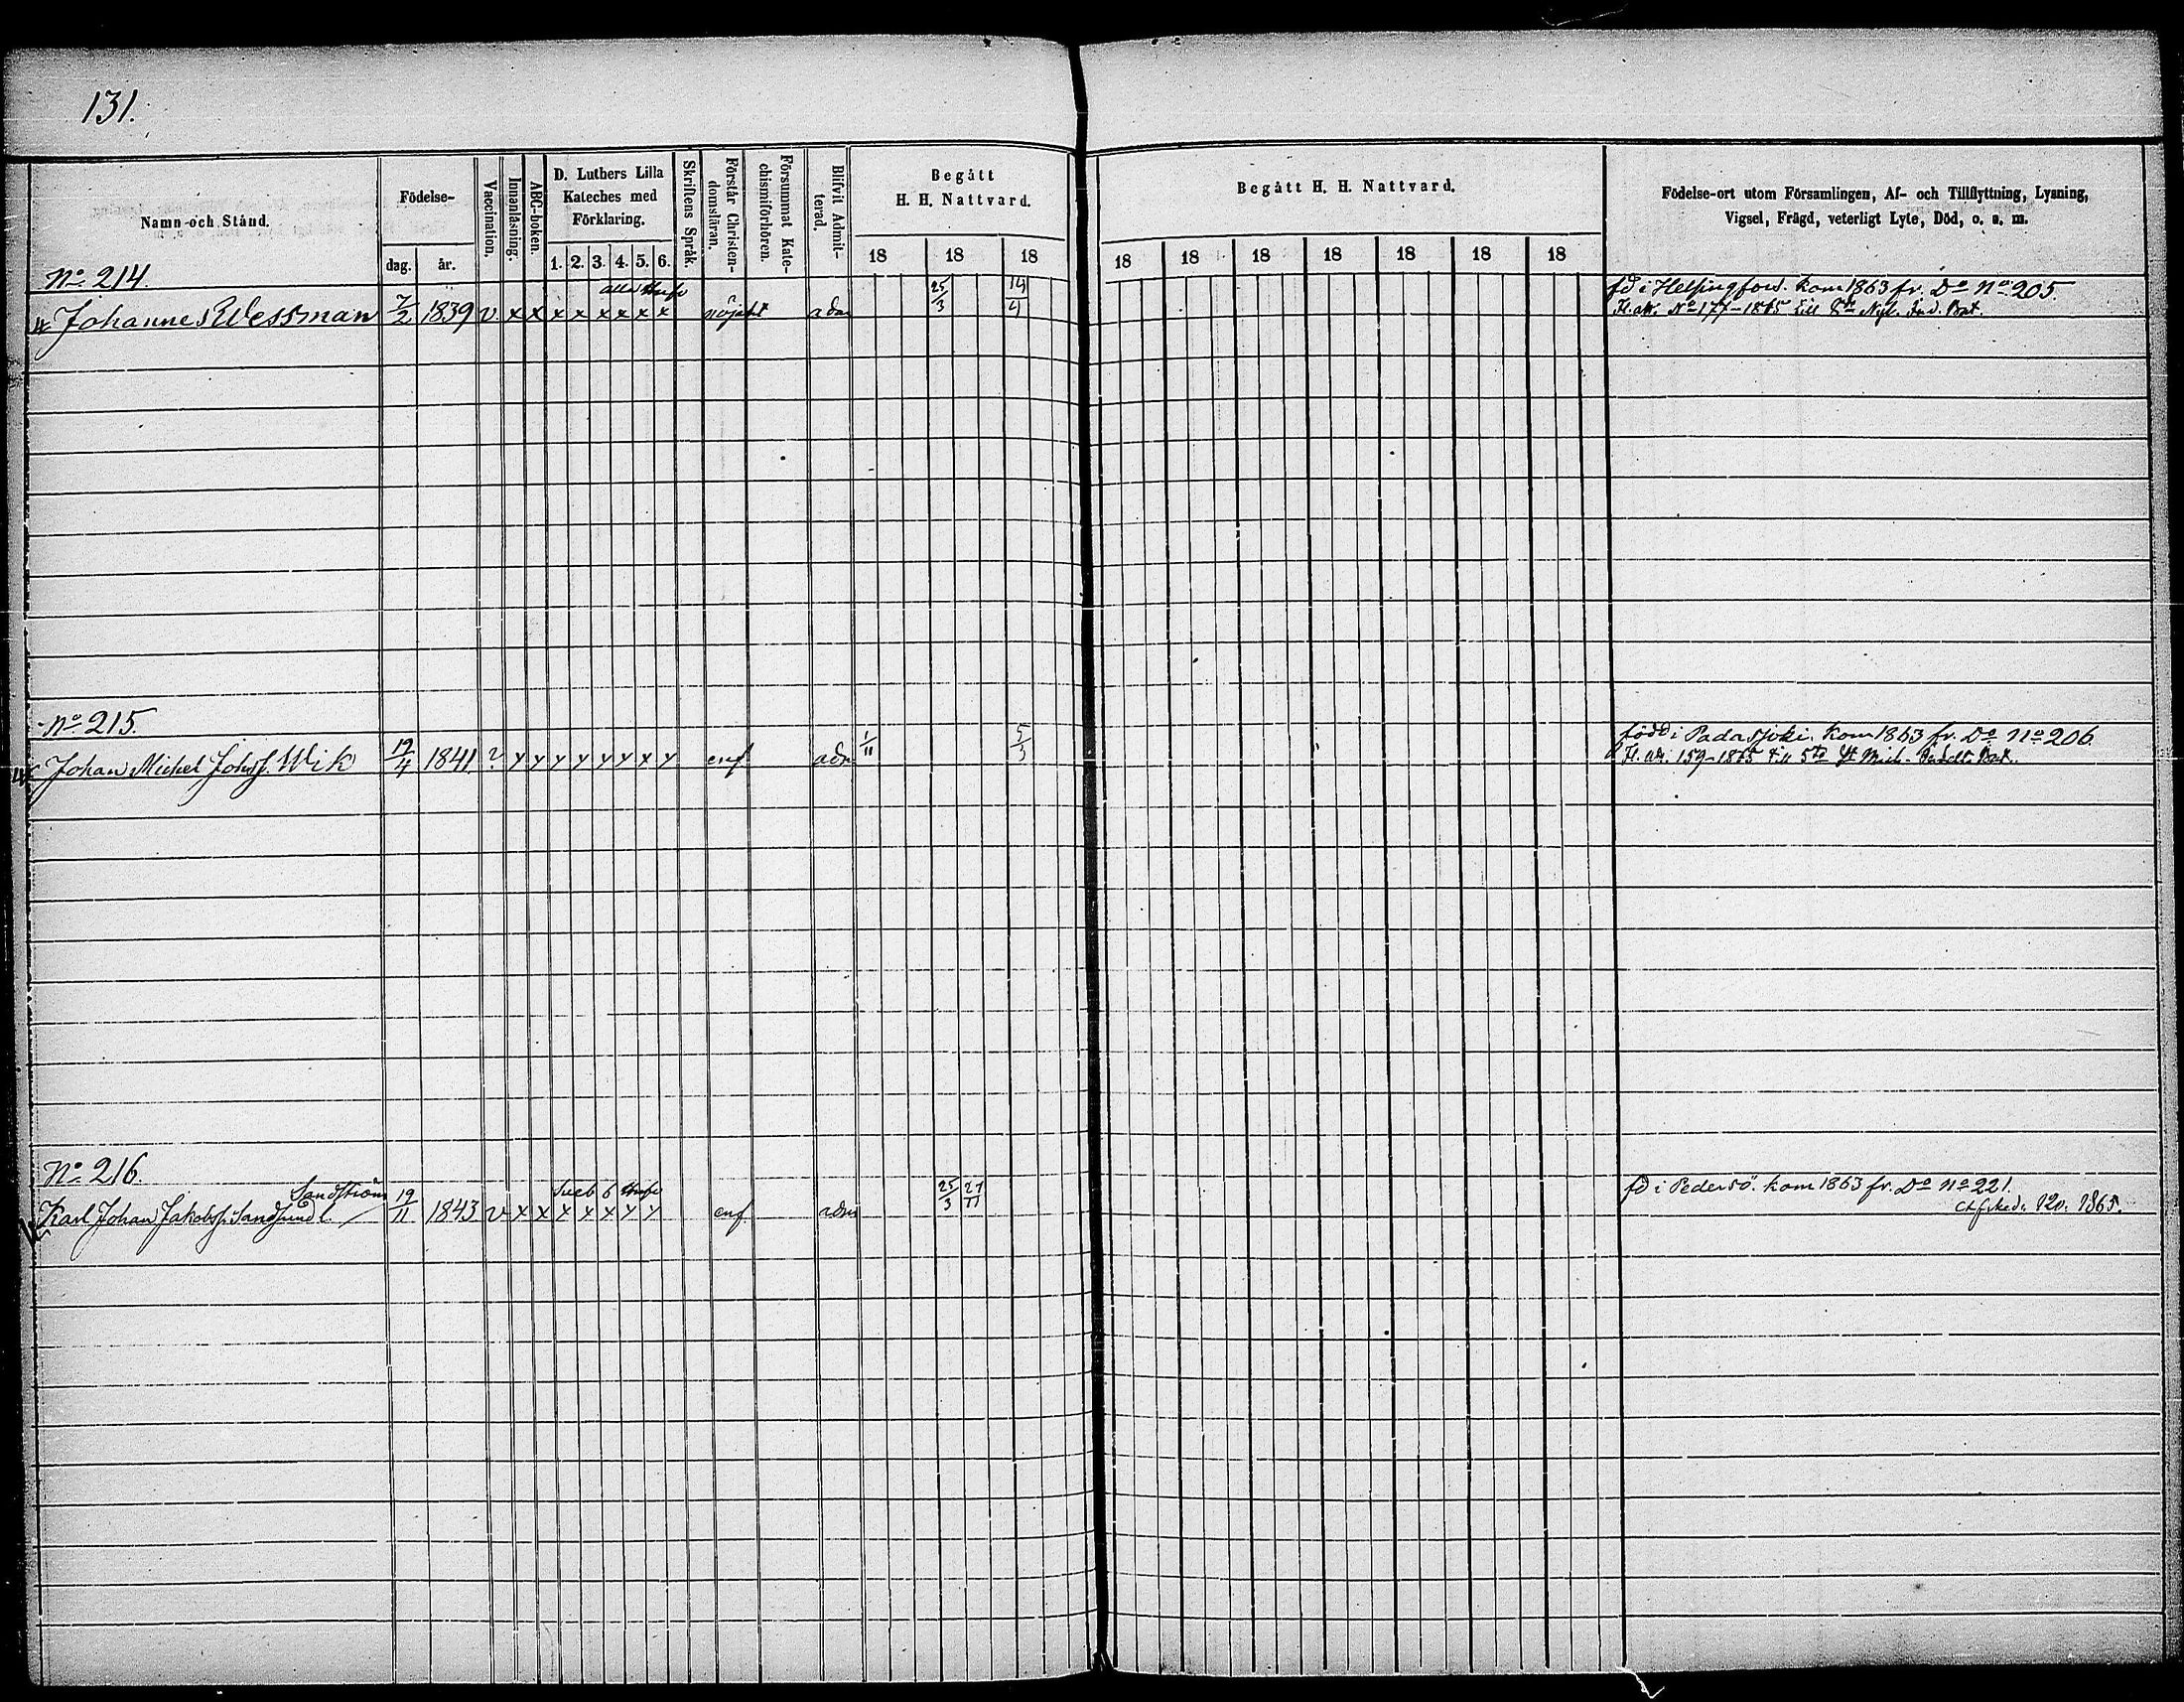 131.
Namn och Stånd.
Födelse-
dag.
år.
Vaccination.
Innanläsning.
ABC-boken.
D. Luthers Lilla
Kateches med
Förklaring.
1. 2. 3. 4. 5. 6.
Skriftens Språk.
Förstår Christen-
domsläran.
Försummat Kate-
chismiförhören.
Blifvit Admit-
terad.
Begått
H. H. Nattvard.
18 18 18
Begått H. H. Nattvard.
18 18 18 18 18 18 18
Födelse-ort utom Församlingen, Af- och Tillflyttning, Lysning,
Vigsel, Frägd, veterligt Lyte, Död, o. s. m.
No 214.
Johannes Wessman 7/2 1839 v x x x x x x x x nöjakt adm 25/3 14/4
fd i Helsingfors. kom 1863 fr. Do No 205.
No 177-1865 till Nyl. Ind. Bat.
No 215.
Johan Michel Johss. Wik 19/4 1841 ? y y y y y y x y enf adm 1/11 5/3
född i Padasjoki. kom 1863 fr. Do No 206.
159-1865 till 5te St Mich. Bat.
No 216.
Sandström
Karl Johan Jakobss. Sandsund 19/11 1843 v x x x x x y y enf adm 25/3 27/11
fd i Pedersö. kom 1863 fr. Do No 221.
Afsked. 120. 1865.